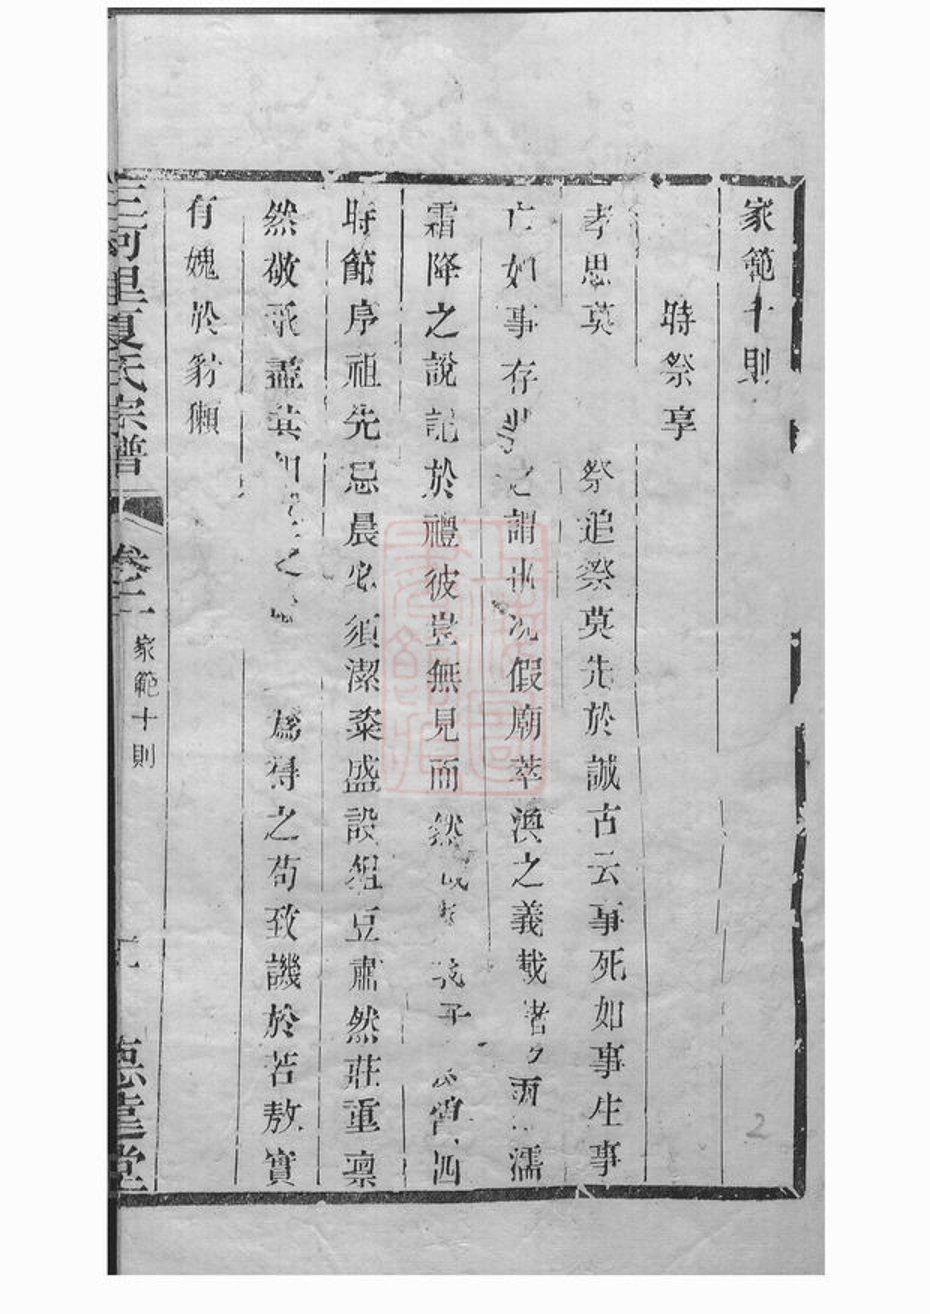 家範十則
時祭享
孝思莫祭追祭莫先於誠古云事死如事生事
亡如事存此之謂也况假廟萃渙之義載者雨濡
霜降之說記於禮彼豈無見而然我子當四
時節序祖先忌晨必須潔粢盛設俎豆肅然莊重凛
然敬承盡其如之為得之苟致譏於若敖實
有媿於豺獺
三河里夏氏宗譜
卷二
家範十則
二
2